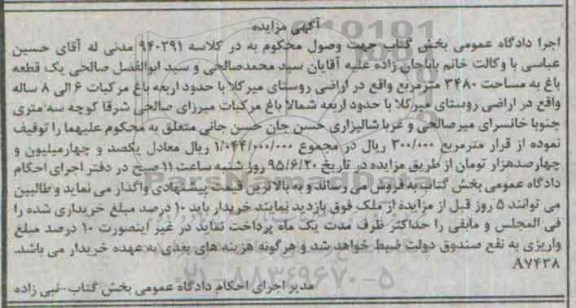 آگهی مزایده
اجرا دادگاه عمومی بخش گتاب جهت وصول محکوم به در کلاسه ۹۴۰۳۹۱ مدنی له آقای حسین
عباسی با وکالت خانم باباجان زاده علیه آقایان سید محمدصالحی و سید ابوالفضل صالحی یک قطعه
باغ به مساحت ۳۴۸۰ مترمربع واقع در اراضی روستای میرکلا با حدود اربعه باغ مرکبات ۶ الی ۸ ساله
واقع در اراضی روستای میرکلا با حدود اربعه شمالا باغ مرکبات میرزای صالحی شرقا کوچه سه متری
جنوبا خانسرای میرصالحی و غربا شالیزاری حسن جان حسن جانی متعلق به محکوم علیهما را توقیف
نموده از قرار مترمربع ۳۰۰/۰۰۰ ریال در مجموع ۱/۰۴۴/۰۰۰/۰۰۰ ریال معادل یکصد و چهارمیلیون و
چهارصدهزار تومان از طریق مزایده در تاریخ ۹۵/۶/۲۰ روز شنبه ساعت ۱۱ صبح در دفتر اجرای احکام
دادگاه عمومی بخش گتاب به فروش می رساند و به بالاترین قیمت پیشنهادی واگذار می نماید و طالبین
می توانند ۵ روز قبل از مزایده از ملک فوق بازدید نمایند خریدار باید ۱۰ درصد مبلغ خریداری شده را
فی المجلس و مابقی را حداکثر ظرف مدت یک ماه پرداخت نماید در غیر اینصورت ۱۰ درصد مبلغ
واریزی به نفع صندوق دولت ضبط خواهد شد و هرگونه هزینه های بعدی به عهده خریدار می باشد.
۸۹۷۴۳۸
مدیر اجرای احکام دادگاه عمومی بخش گتاب-نبی زاده
۰۲۱-۸۸۳۴۹۶۷۰-۵